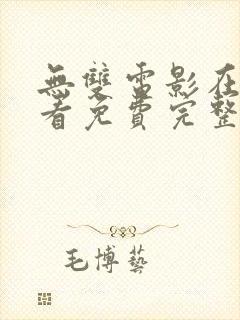 無雙電影在
看免費完整
毛博藝